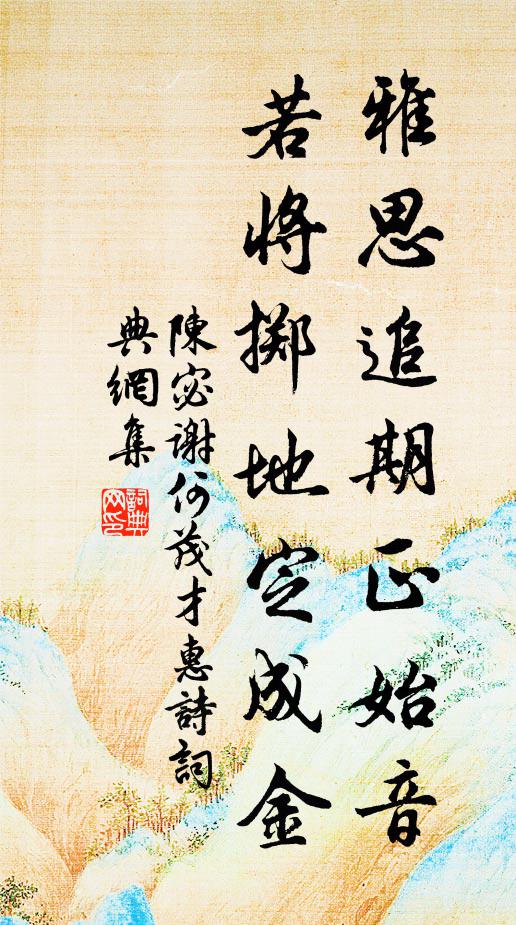 雅思追期正始音
若將擲地定成金
陳宓謝何茂才惠詩詞
典網集
詞典網印